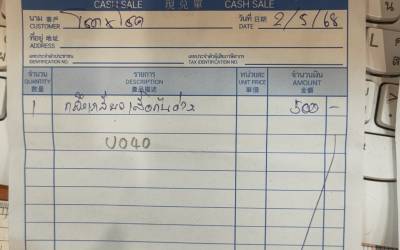 CASH SALE 現兌單 CASH SALE
นาม 客戶 CUSTOMER วันที่ 日期 DATE 2/5/68
ที่อยู่ 地址 ADDRESS
เลขประจำตัวประชาชน IDENTIFICATION NO. เลขประจำตัวผู้เสียภาษีอากร TAX IDENTIFICATION NO.
จำนวน QUANTITY 數量 รายการ DESCRIPTION 貨品描述 หน่วยละ UNIT PRICE 單價 จำนวนเงิน AMOUNT 金額
1 500 -
U040